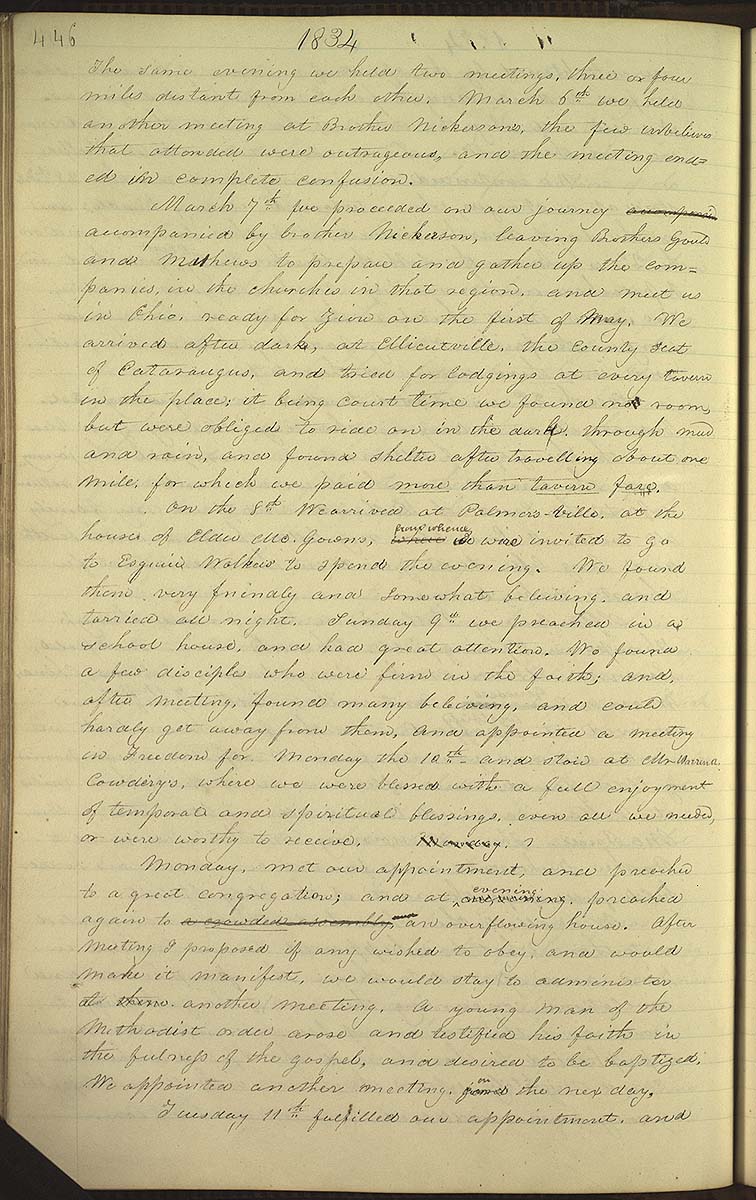 446 1834
The same evening we held two meetings, three or four
miles distant from each other. March 6th we held
another meeting at Brother Nickersons, the few unbelievers
that attended were outrageous, and the meeting end=
ed in complete confusion.
March 7th we proceeded on our journey accompanied
accompanied by brother Nickerson, leaving Brothers Gould
and Mathews to prepare and gather up the com=
panies, in the churches in that region, and meet us
in Ohio, ready for Zion on the first of May. We
arrived after dark, at Ellicutville, the county seat
of Cataraugus, and tried for lodgings at every tavern
in the place; it being court time we found no room,
but were obliged to ride on in the dark, through mud
and rain, and found shelter after travelling about one
mile, for which we paid more than tavern fare.
On the 8th We arrived at Palmers-Ville, at the
house of Elder Mc. Gowns, from whence
where we were invited to go
to Esquire Walkers to spend the evening. We found
them very friendly and somewhat believing, and
tarried all night. Sunday 9th we preached in a
school house, and had great attention. We found
a few disciples who were firm in the faith; and,
after meeting, found many believing, and could
hardly get away from them, and appointed a meeting
in Freedom for Monday the 10th and staid at Mr Warren A.
Cowdery's, where we were blessed with a full enjoyment
of temporal and spiritual blessings, even all we needed,
or were worthy to receive. Monday.
Monday, met our appointment, and preached
to a great congregation; and at evening preached
again to a crowded assembly, an overflowing house. After
meeting I proposed if any wished to obey, and would
make it manifest, we would stay to administer
at another meeting. A young man of the
Methodist order arose and testified his faith in
the fulness of the gospel, and desired to be baptized.
We appointed another meeting, on the nex day,
Tuesday 11th fulfilled our appointment, and